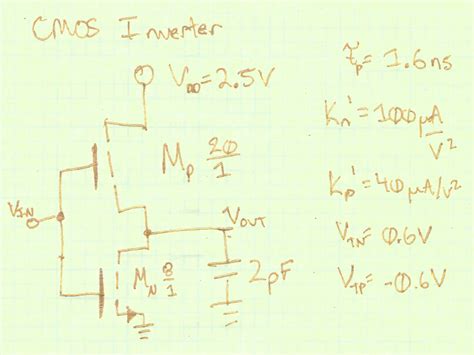 CMOS Inverter
V_DD = 2.5V
M_P 20/1
V_IN
V_OUT
M_N 8/1
2pF
τ_p = 1.6ns
K_n' = 100 μA/V²
K_p' = 40 μA/V²
V_TN = 0.6V
V_TP = -0.6V